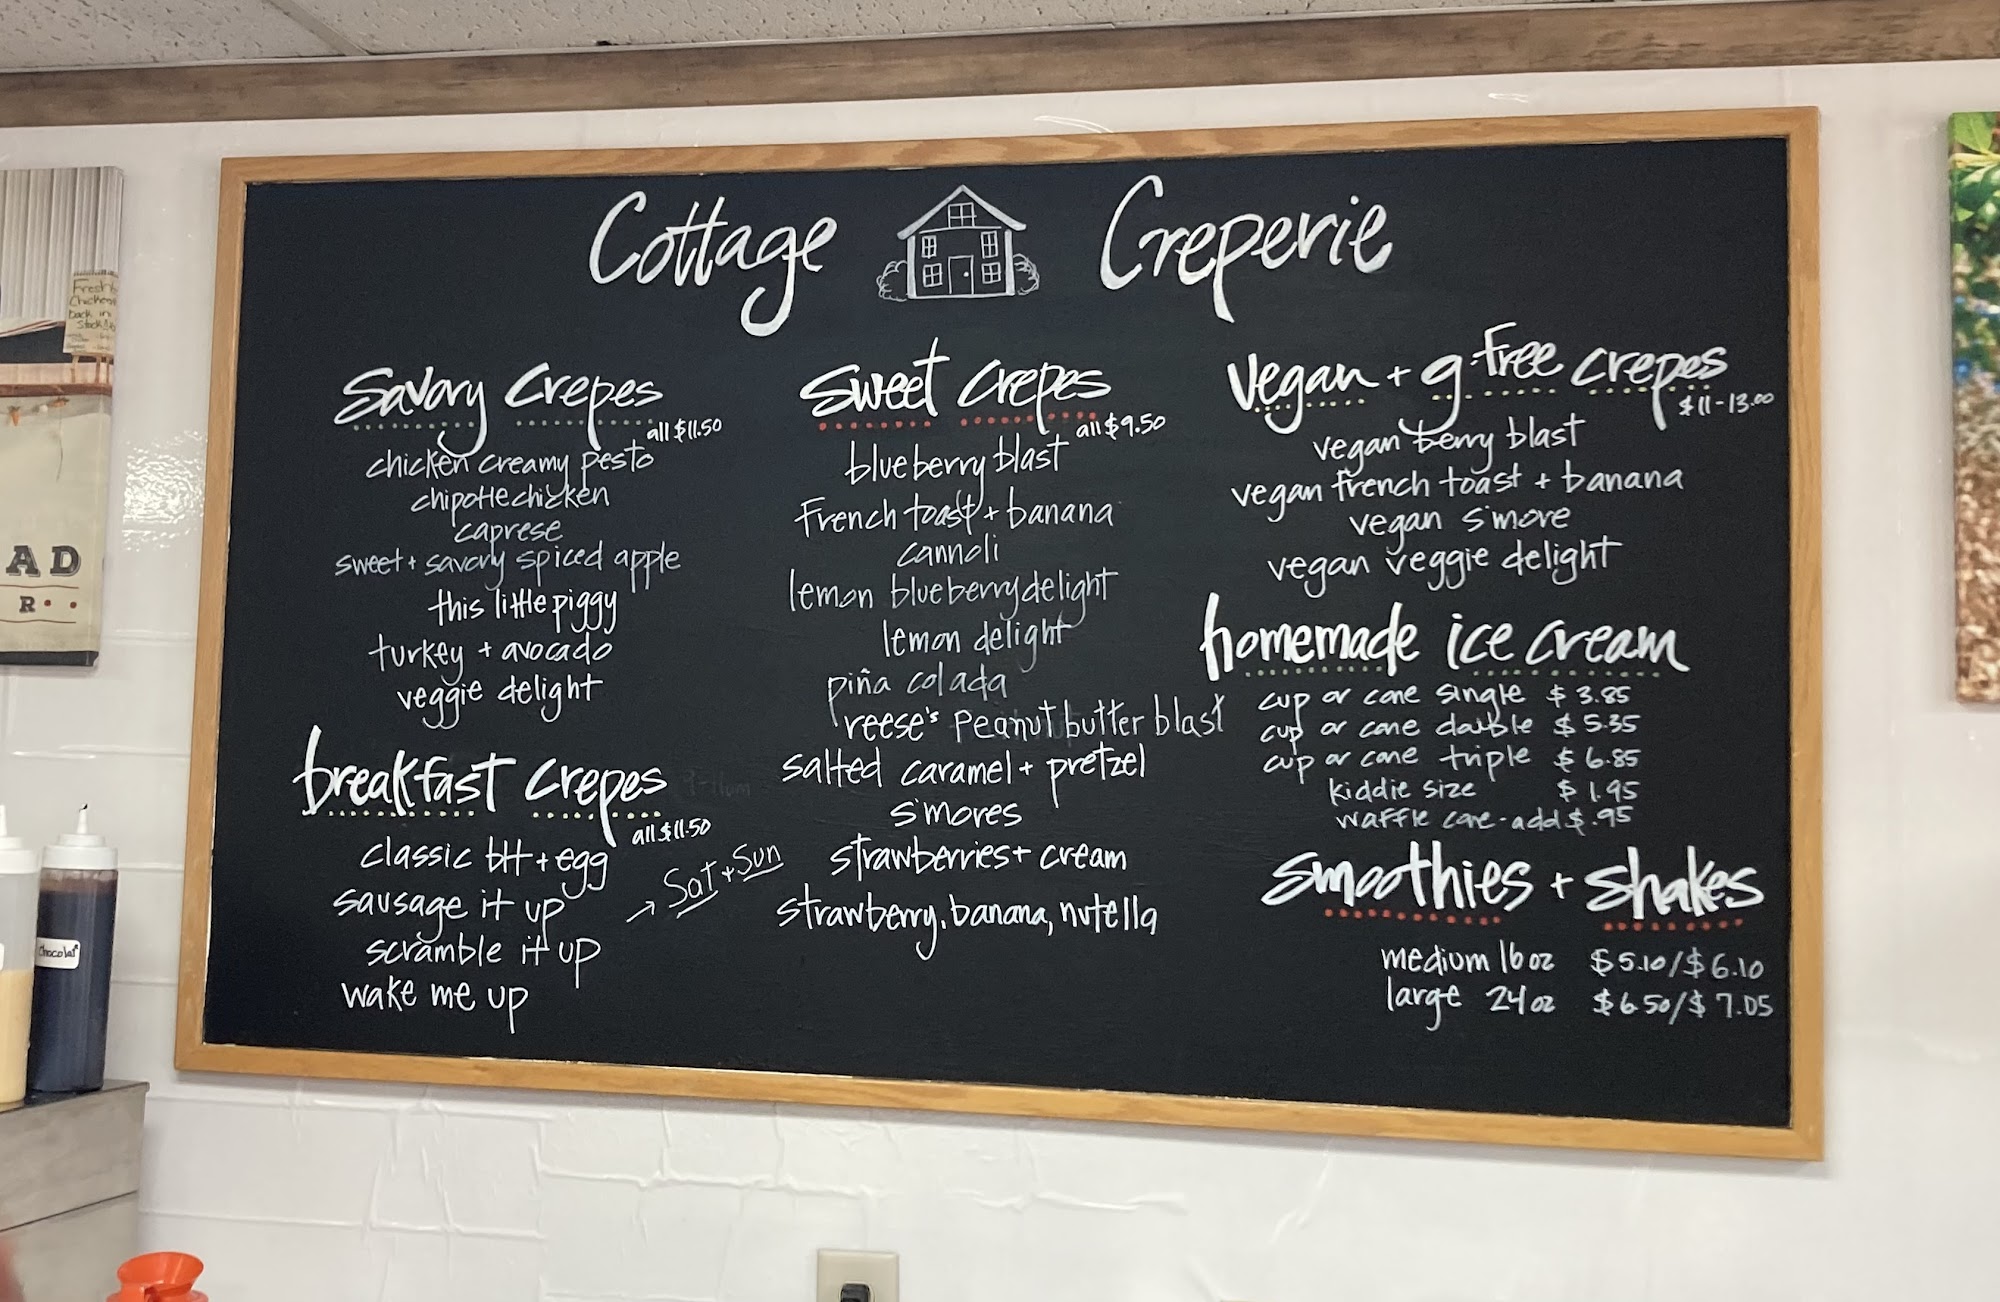 Cottage Creperie
Savory Crepes
all $11.50
chicken creamy pesto
chipotle chicken
caprese
sweet + savory spiced apple
this little piggy
turkey + avocado
veggie delight
breakfast crepes
all $11.50
classic bH + egg
sausage it up
scramble it up
wake me up
→ Sat + Sun
sweet crepes
all $9.50
blueberry blast
French toast + banana
cannoli
lemon blueberry delight
lemon delight
piña colada
reese's Peanut butter blast
salted caramel + pretzel
s'mores
strawberries + cream
strawberry, banana, nutella
vegan + g-free crepes
$11-13.00
vegan berry blast
vegan french toast + banana
vegan s'more
vegan veggie delight
homemade ice cream
cup or cone single $3.85
cup or cone double $5.35
cup or cone triple $6.85
kiddie size $1.95
waffle cone - add $.95
smoothies + shakes
medium 16oz $5.10/$6.10
large 24oz $6.50/$7.05
Chickens
Back in
Stock
AD
R
Chocolat